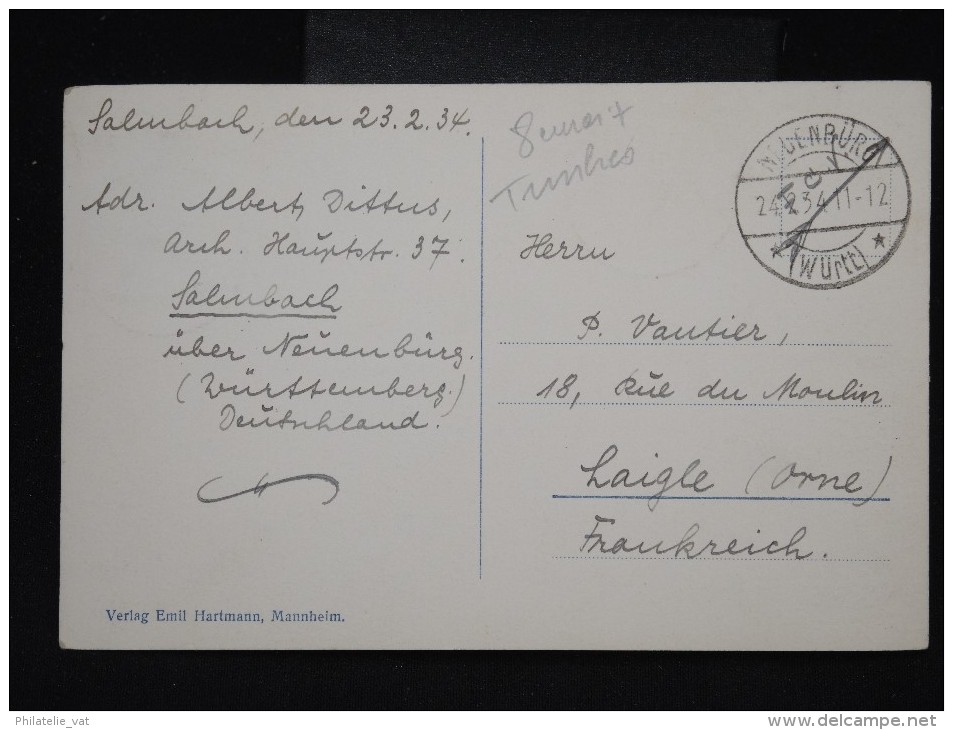 Salmbach, den 23.2.34.
Adr. Albert Dittus,
Arch. Hauptstr. 37.
Salmbach
über Neuenbürg.
(Württemberg.)
Deutschland.
Verlag Emil Hartmann, Mannheim.
Timbres
NEUENBÜRG
24.2.34.11-12
(Württ)
Herrn
P. Vautier,
18, Rue du Moulin
Laigle (Orne)
Frankreich.
Philatelie_vat
www.delcampe.net